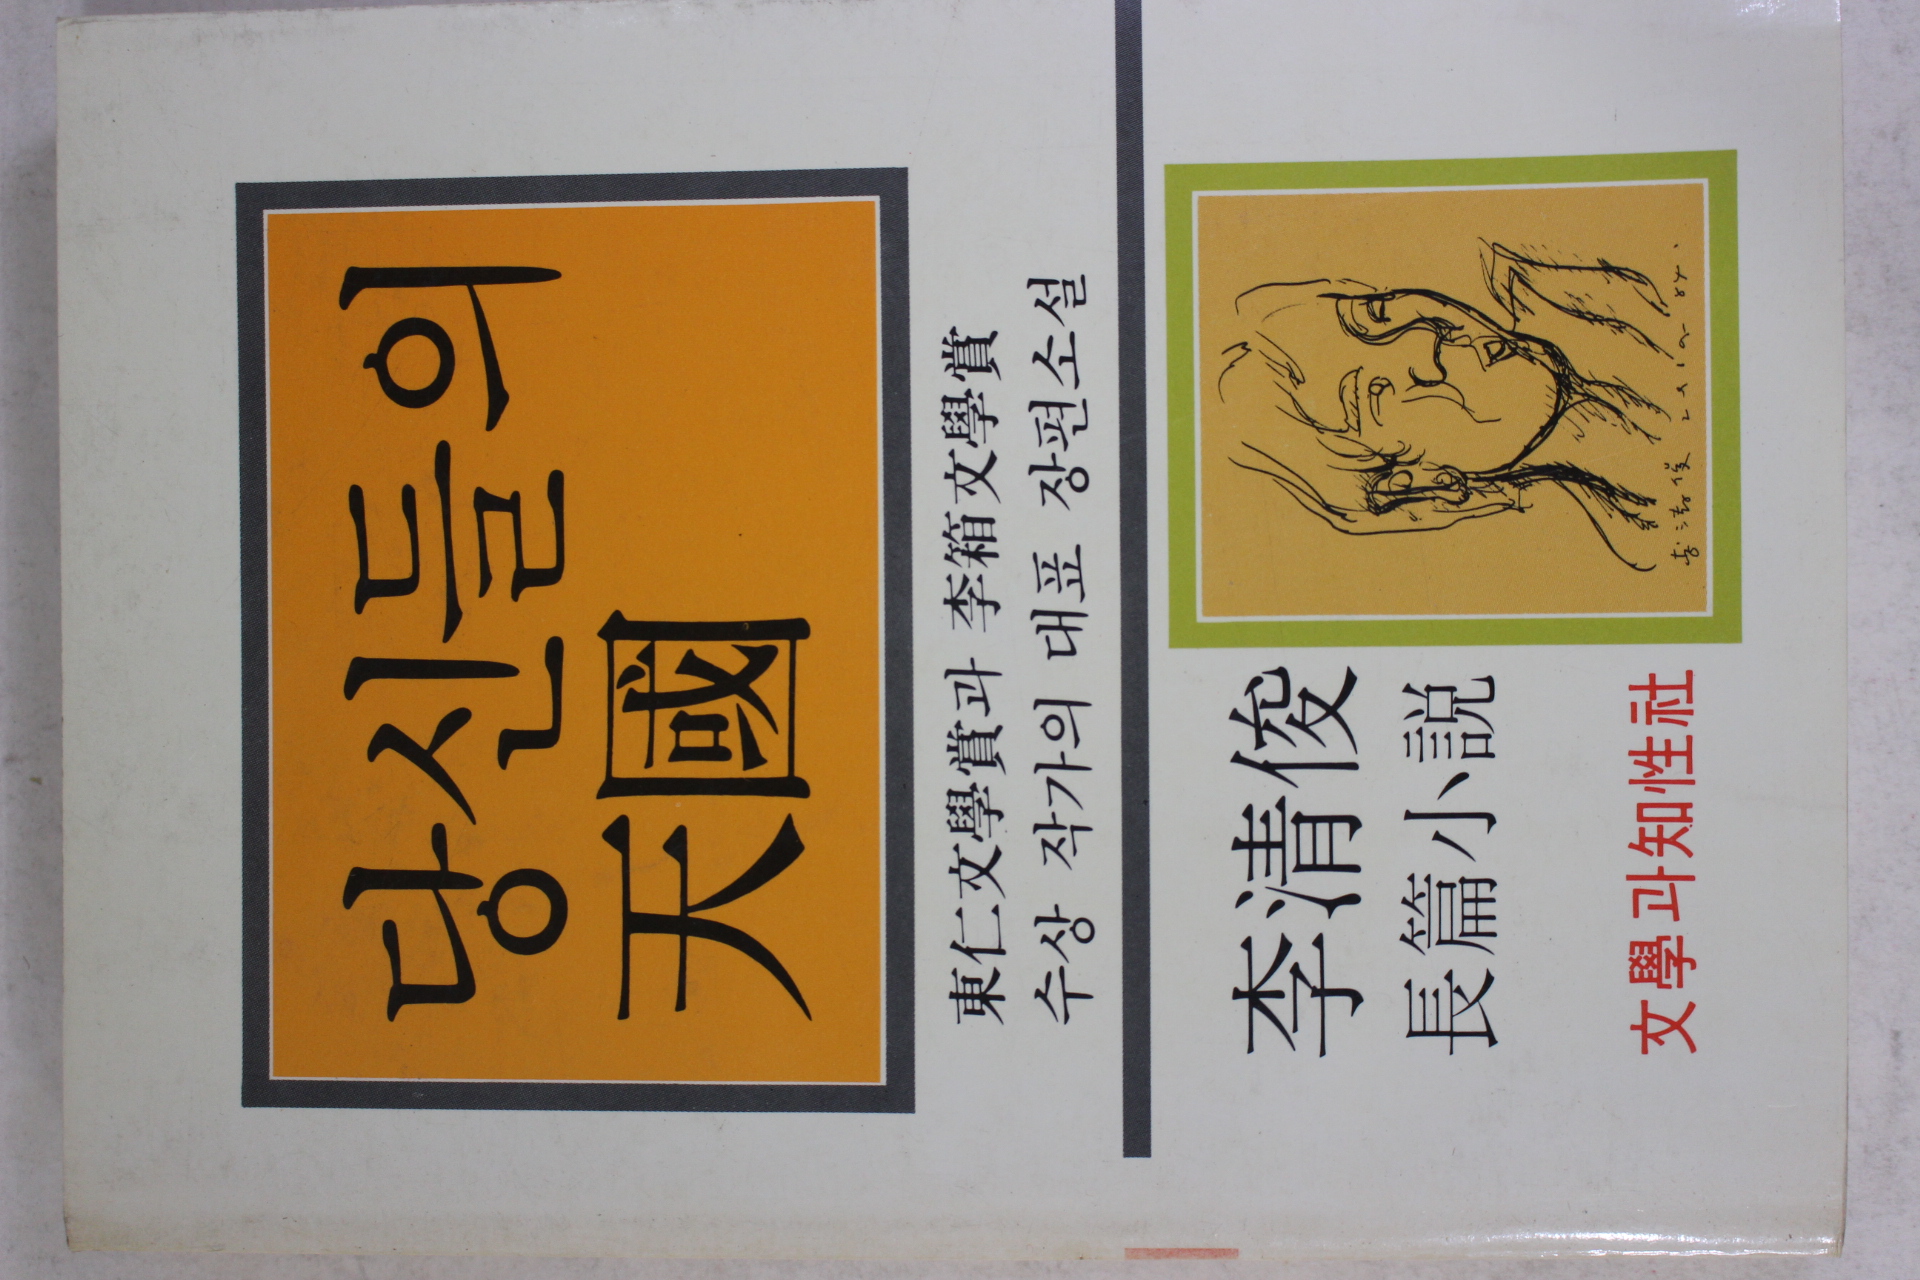 당신들의
天國
東仁文學賞과 李箱文學賞
수상 작가의 대표 장편소설
李清俊
長篇小説
文學과知性社
李清俊
84.